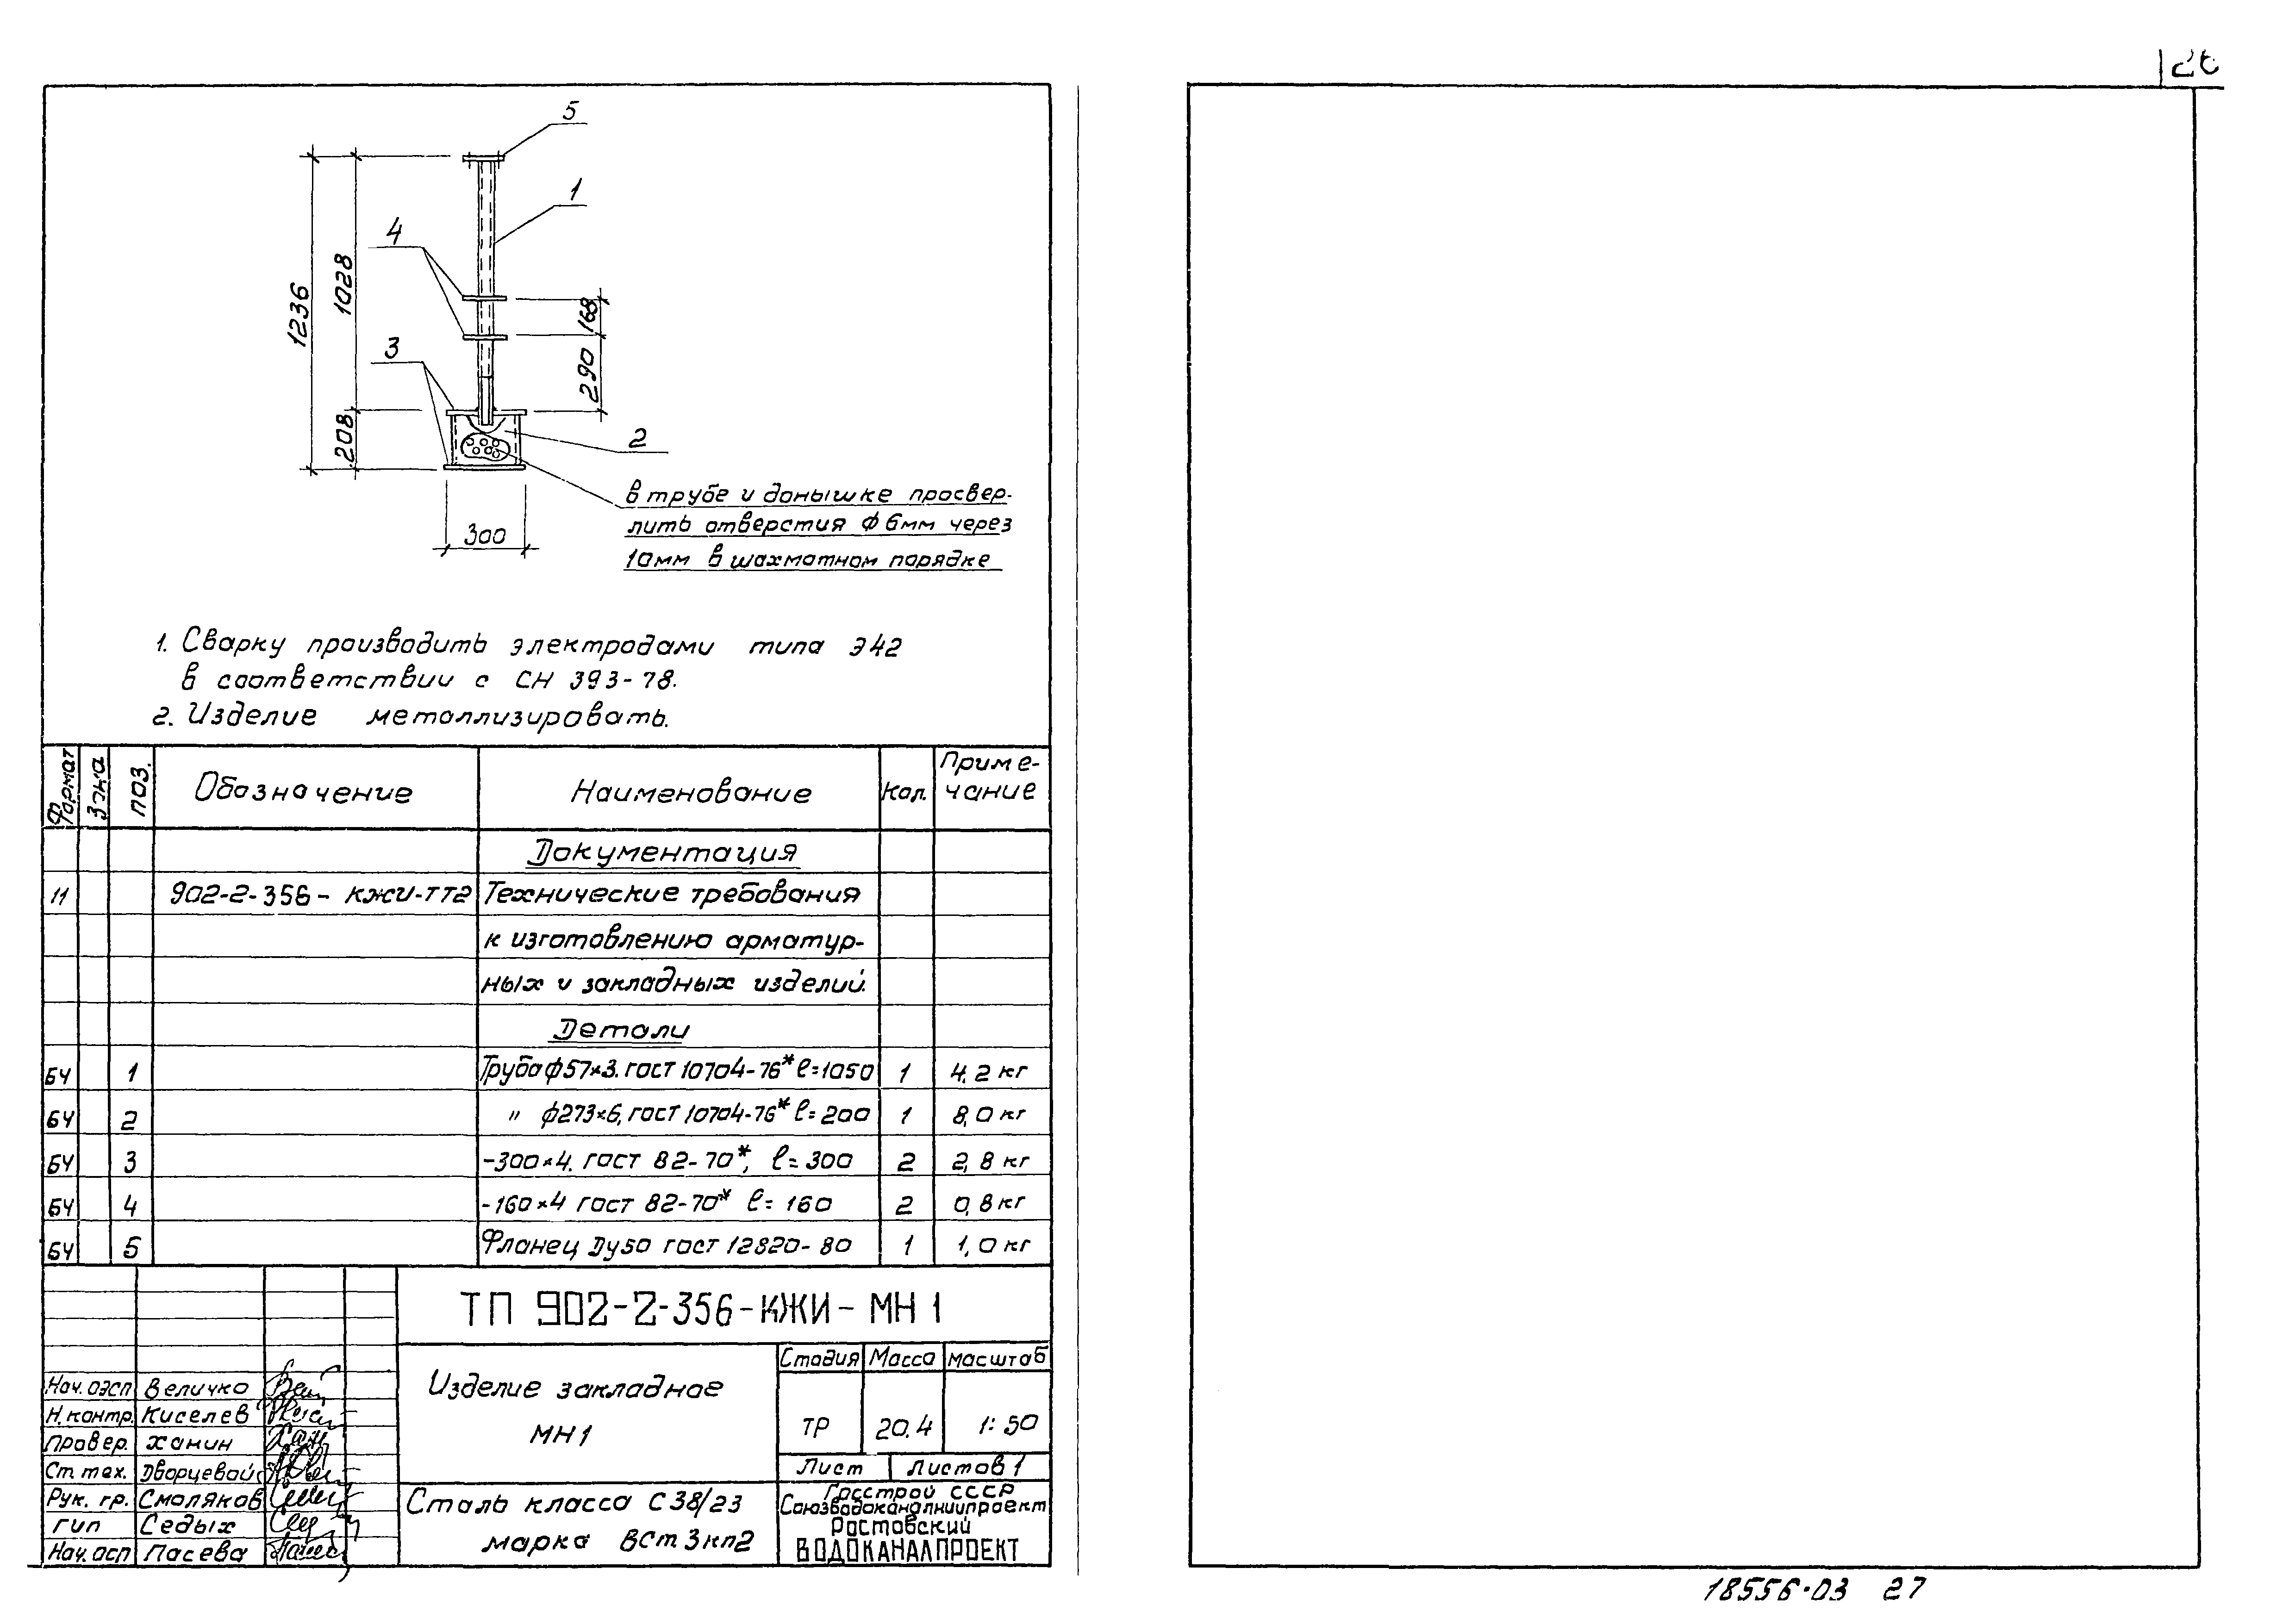 26
5
1
4
3
2
1236
1028
208
168
290
300
в трубе и донышке просвер-
лить отверстия ф 6мм через
10мм в шахматном порядке
1. Сварку производить электродами типа Э42
в соответствии с СН 393-78.
2. Изделие металлизировать.
Формат Зона Поз. Обозначение Наименование Кол. Приме-
чание
Документация
11 902-2-356-КЖИ-ТТ2 Технические требования
к изготовлению арматур-
ных и закладных изделий.
Детали
БЧ 1 Труба ф57×3. гост 10704-76* ℓ=1050 1 4,2 кг
БЧ 2 " ф273×6, гост 10704-76* ℓ=200 1 8,0 кг
БЧ 3 -300×4. гост 82-70*, ℓ=300 2 2,8 кг
БЧ 4 -160×4 гост 82-70* ℓ=160 2 0,8 кг
БЧ 5 Фланец Ду50 гост 12820-80 1 1,0 кг
ТП 902-2-356-КЖИ-МН 1
Изделие закладное
МН1
Стадия Масса Масштаб
ТР 20.4 1:50
Лист Листов 1
Нач. оэсп Величко
Н. контр. Киселев
Провер. Ханин
Ст. тех. Дворцевой
Рук. гр. Смоляков
гип Седых
Нач. осп Пасева
Сталь класса С38/23
марка ВСт3кп2
Госстрой СССР
Союзводоканалниипроект
Ростовский
ВОДОКАНАЛПРОЕКТ
18556-03 27